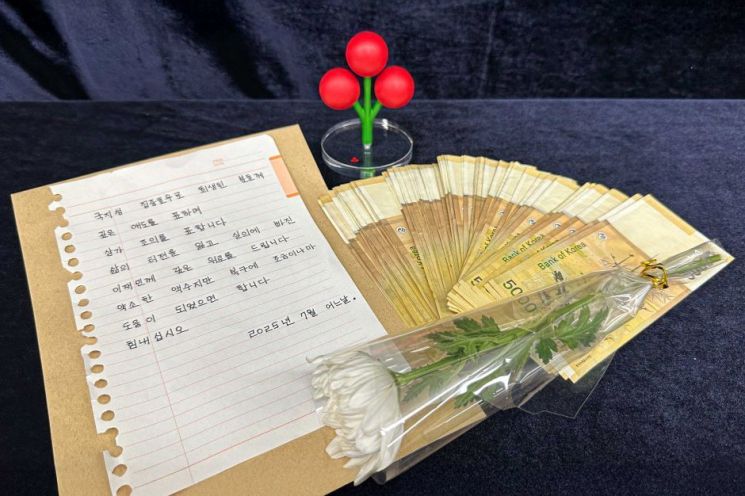 국지성 집중호우로 희생된 분들께
깊은 애도를 표하며
삼가 조의를 표합니다
삶의 터전을 잃고 실의에 빠진
이재민께 깊은 위로를 드립니다
약소한 액수지만 복구에 조금이나마
도움이 되었으면 합니다
힘내십시오 2025년 7월 어느날.
Bank of Korea
Bank of Korea